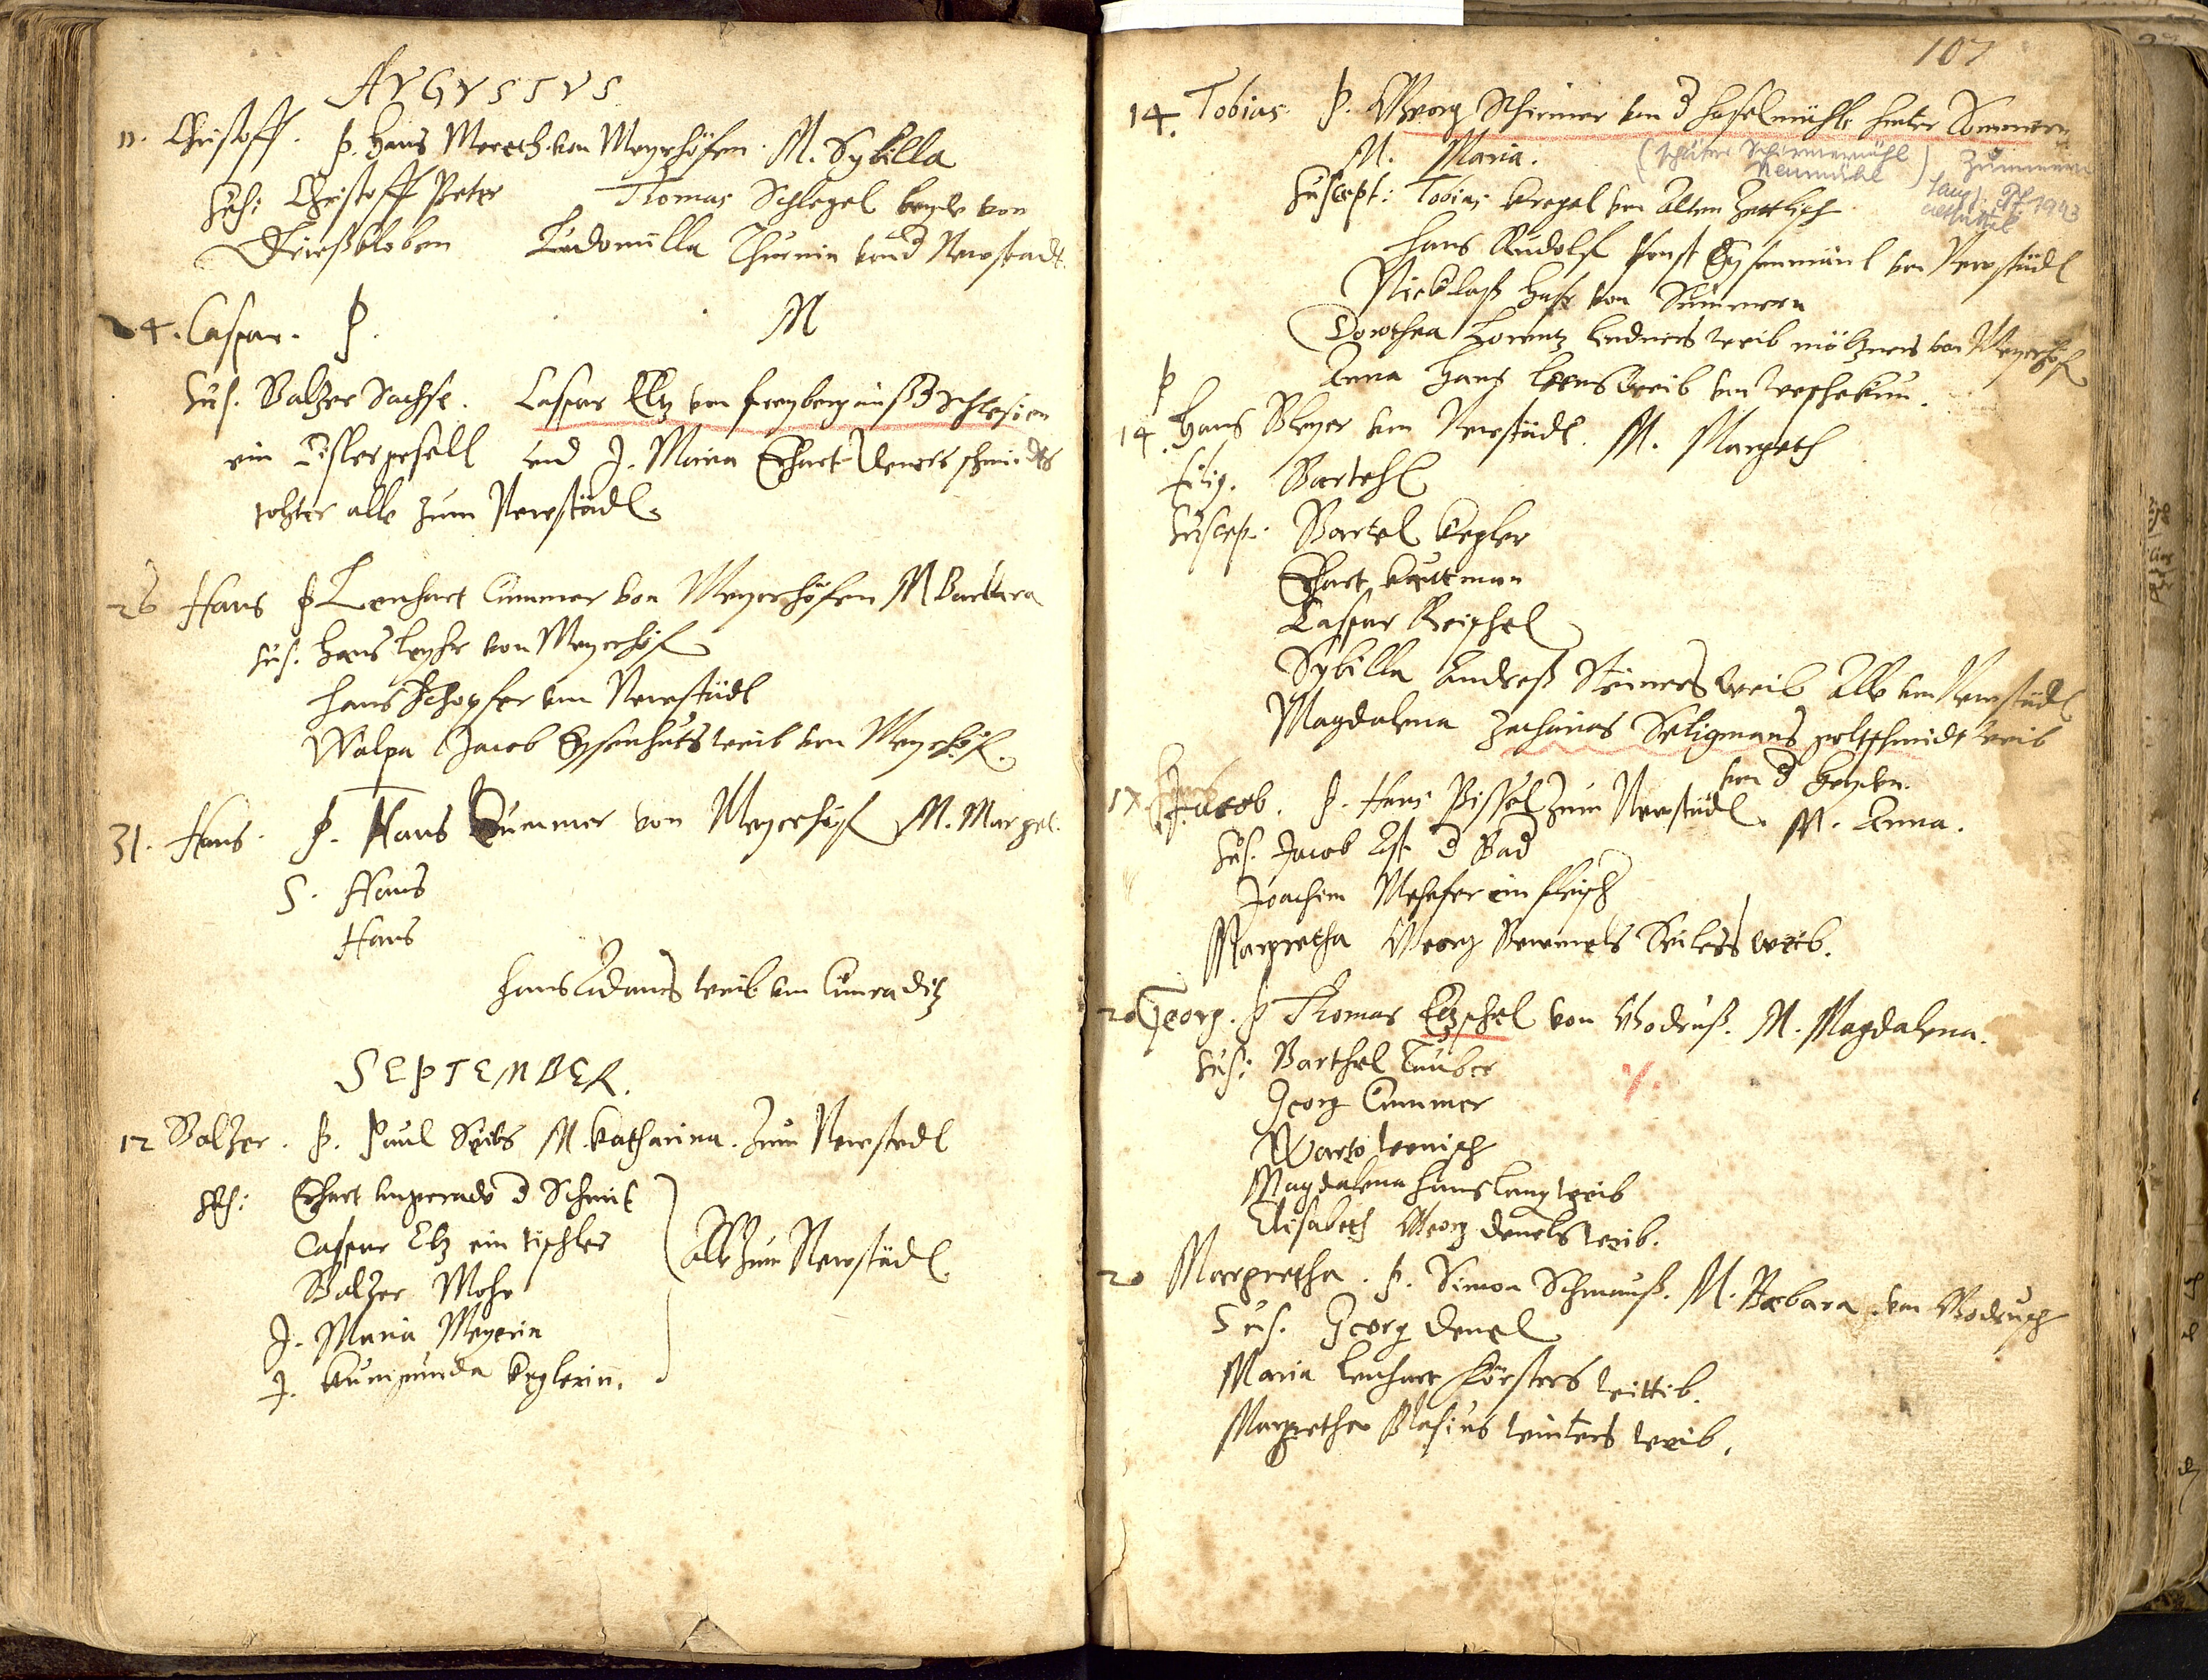 AVGVSTVS
11. Christoff. P. Hans Meresch von Meyrhöfen. M. Sybilla
Sus: Christoff Peter Thomas Schlegel beyde von
Ludomilla Thurnin von d Newstadt.
24. Caspar. P. M
Sus. Balzer Sachse. Caspar Eltz von Freyberg auß Schlesien
ein Tischlergesell und J. Maria Erhart schmidts
tochter alle zum Newstädl.
26 Hans P Lenhart Cummer von Meyerhöfen M Barbara
Sus. Hans von Meyerhöf
Hans Schopfer vom Newstädl
Walpa Jacob Eysenhuts weib von Meyrhöf.
31. Hans. P. Hans Cummer von Meyerhöf M. Margret.
S. Hans
Hans
Hans Adams weib von Cunraditz
SEPTEMBER.
12 Balzer. P. Paul M. Katharina. zum Newstedl
Sus: Erhart d Schmit
Caspar Eltz ein tischler
Balzer Mohr
alle zum Newstädl
J. Maria Meyerin
J. Kunigunda Keglerin.
107
14. Tobias P. Georg Schirmer von d Haselmühle hinter Sommern
M. Maria.
(später Schirmermühl
Neumühl) Zummern
1943
Suscept: Tobias von Alten Zettlisch
Hans Rudolf sonst Eysenmänl von Newstädl
Nicklaß Hase von Summern
Dorothea Lorentz Lindners weib mölzners von Meyerhöf
Anna Hans weib von
P
14. Hans Meyer von Newstädl. M. Margreth
filig. Barthel
Suscep. Bartel Kegler
Erhart Kautman
Caspar Reichel
Sybilla Andreß Steiners weib alle von Newstädl
Magdalena Zacharias Seligmans goltschmidt weib
von d
17. Jacob. P. Hans Bissel zum Newstädl. M. Anna.
Sus. Jacob d Bad
Joachim ein fleisch
Margretha Georg Seilers weib.
20 Georg. P Thomas Etzschel von Godruß. M. Magdalena.
Sus: Barthel Tauber
Georg Cummer
Magdalena Hans Lang weib
Elisabeth Georg Denels weib.
20 Margretha. P. Simon Schmauß. M. Barbara von Godrusch
Sus. Georg Denel
Maria Lenhart Försters wittib.
Margretha Blasius winters weib.